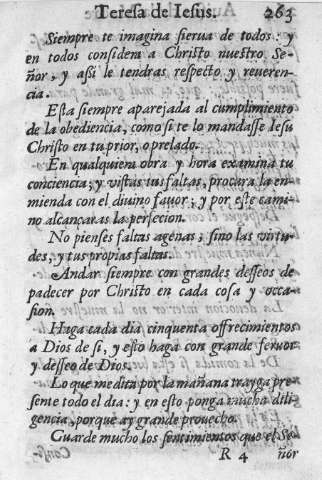 Teresa de Iesus. 263
Siempre te imagina sierua de todos: y
en todos considera a Christo nuestro Se-
ñor, y assi le tendras respecto y reueren-
cia.
Esta siempre aparejada al cumplimiento
de la obediencia, como si te lo mandasse Iesu
Christo en tu prior, o prelado.
En qualquiem obra y hora examina tu
conciencia; y vistas tus faltas, procura la en-
mienda con el diuino fauor; y por este cami-
no alcançaras la perfecion.
No pienses faltas agenas, sino las virtu-
des, y tus propias faltas.
Andar siempre con grandes desseos de
padecer por Christo en cada cosa y occa-
sion.
Haga cada dia cinquenta offrecimientos
a Dios de si, y esto haga con grande feruor
y desseo de Dios.
Lo que medita por la mañana trayga pre-
sente todo el dia: y en esto ponga mucha dili-
gencia, porque ay grande prouecho.
Guarde mucho los sentimientos que el Se-
R 4 ñor